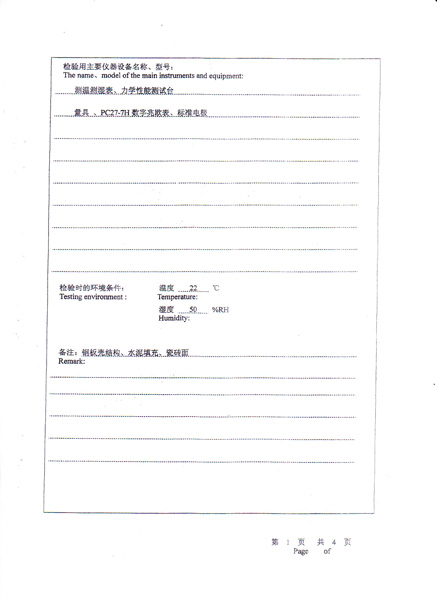 检验用主要仪器设备名称、型号:
The name、model of the main instruments and equipment:
测温测湿表、力学性能测试台
量具 、PC27-7H 数字兆欧表、标准电极
检验时的环境条件: 温度 22 ℃
Testing environment : Temperature:
湿度 50 %RH
Humidity:
备注: 钢板壳结构、水泥填充、瓷砖面
Remark:
第 1 页 共 4 页
Page of